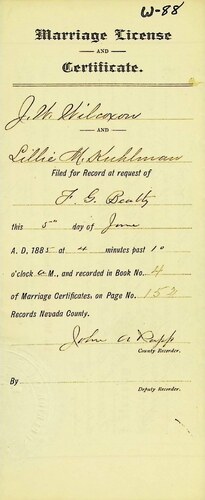 W-88
Marriage License
AND
Certificate.
J. W. Wilcoxon
AND
Lillie M. Kuhlman
Filed for Record at request of
F. G. Beatty
this 5th day of June
A. D. 1885 at 4 minutes past 10
o'clock A M., and recorded in Book No. 4
of Marriage Certificates, on Page No. 152
Records Nevada County.
John A Rapp
County Recorder.
By
Deputy Recorder.